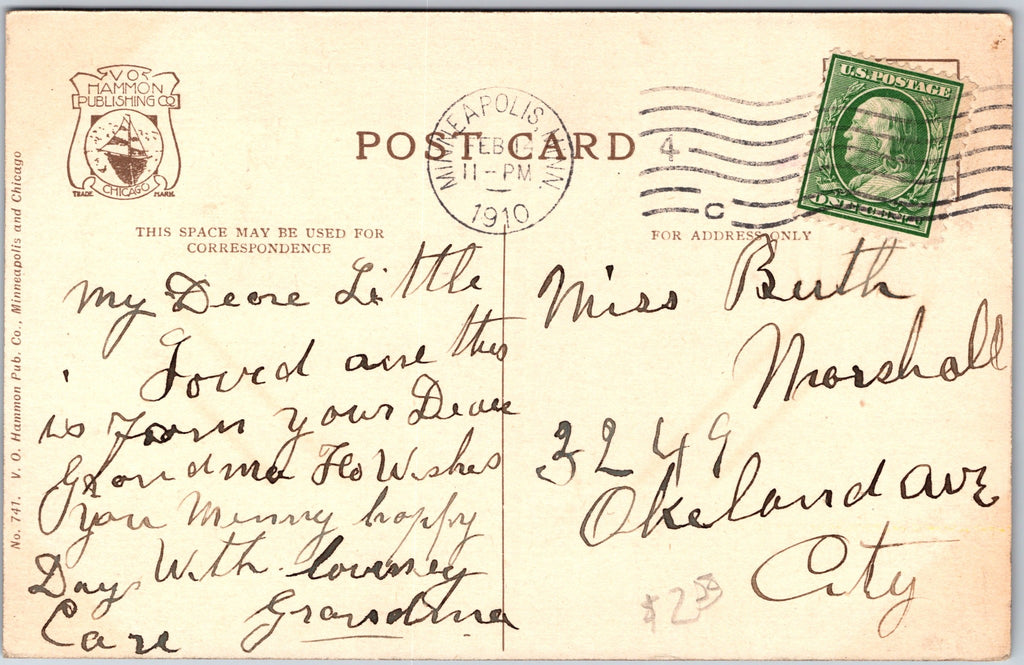 V O
HAMMON
PUBLISHING CO
CHICAGO
TRADE MARK
POST CARD
MINNEAPOLIS, MINN.
FEB 1
11-PM
1910
4
C
U.S. POSTAGE
THIS SPACE MAY BE USED FOR
CORRESPONDENCE
FOR ADDRESS ONLY
No. 741. V. O. Hammon Pub. Co., Minneapolis and Chicago
My Deare Little
Loved one this
is From your Deare
Grandma Ho Wishes
you Menny happy
Days With
Care Grandma
Miss Ruth
Marshall
3249
Okeland ave
City
$2